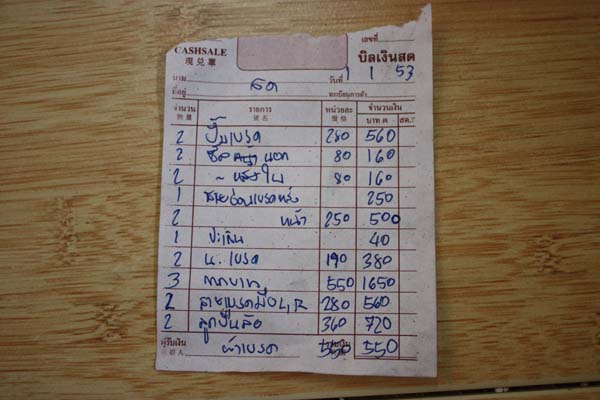 เลขที่
CASHSALE บิลเงินสด
現兑單
นาม สด วันที่ 1 1 53
ที่อยู่ ทะเบียนการค้า
จำนวน รายการ หน่วยละ จำนวนเงิน
數量 貨名 價格 บาท ต สต.
2 ปั๊มเบรค 280 560
2 ซีล นอก 80 160
2 ~ ใน 80 160
1 สายอ่อนเบรคหลัง 250
2 หน้า 250 500
1 ปะเก็น 40
2 น. เบรค 190 380
3 550 1650
2 สายเบรคมือ L, R 280 560
2 ลูกปืนล้อ 360 720
ผู้รับเงิน ผ้าเบรค 550 550